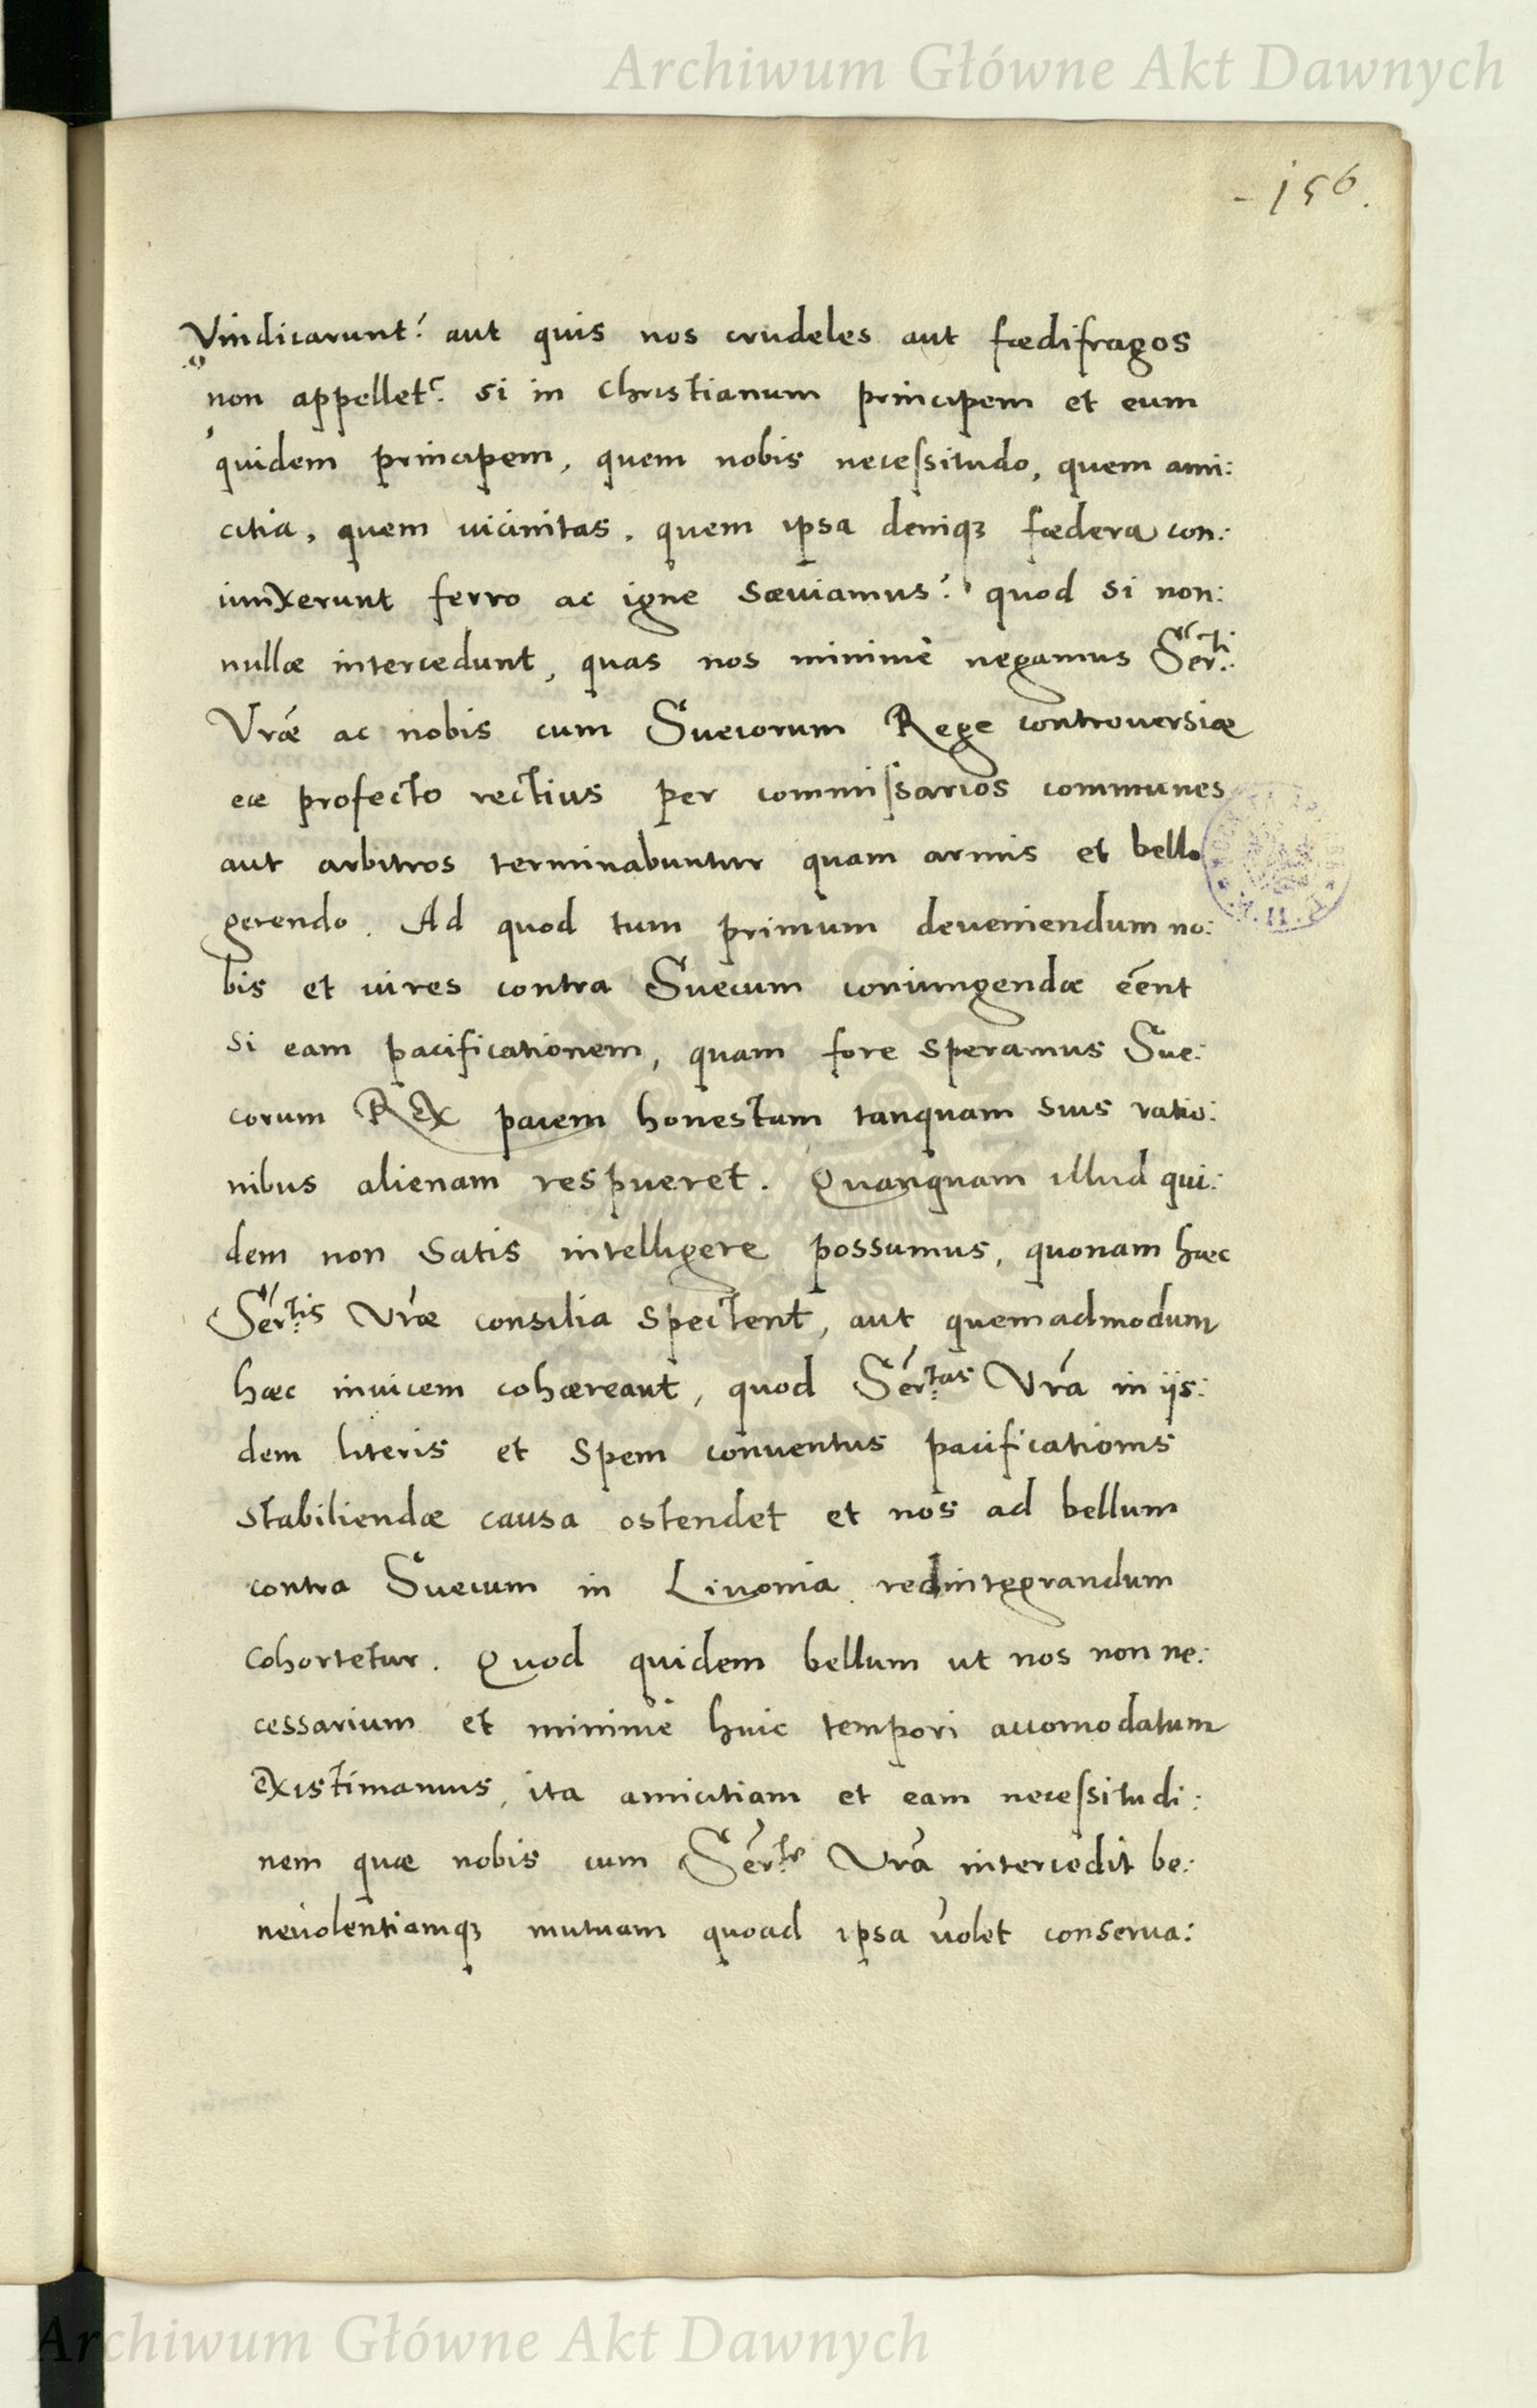 Archiwum Główne Akt Dawnych
156.
Vindicarunt? aut quis nos crudeles aut fœdifragos
non appellet? si in Christianum principem et eum
quidem principem, quem nobis neceſsitudo, quem ami:
citia, quem uicinitas, quem ipsa deniqꝫ fœdera con:
iunxerunt ferro ac igne sæuiamus? quod si non:
nullæ intercedunt, quas nos minimè negamus Ser:ti
Vræ ac nobis cum Suecorum Rege controuersiæ
eæ profecto rectius per commiſsarios communes
aut arbitros terminabuntur quam armis et bello
gerendo. Ad quod tum primum deueniendum no:
bis et uires contra Suecum coniungendæ eēnt
si eam pacificationem, quam fore speramus Sue:
corum Rex pacem honestam tanquam suis ratio:
nibus alienam respueret. Quanquam illud qui:
dem non satis intelligere possumus, quonam hæc
Ser:tis Vræ consilia spectent, aut quemadmodum
hæc inuicem cohæreant, quod Ser:tas Vrā in iis:
dem literis et spem conuentus pacificationis
stabiliendæ causa ostendet et nos ad bellum
contra Suecum in Liuonia redintegrandum
cohortetur. Quod quidem bellum ut nos non ne:
cessarium et minimè huic tempori accomodatum
existimamus, ita amicitiam et eam neceſsitudi:
nem quæ nobis cum Ser:te Vrā intercedit be:
neuolentiamqꝫ mutuam quoad ipsa uolet conserua:
Archiwum Główne Akt Dawnych